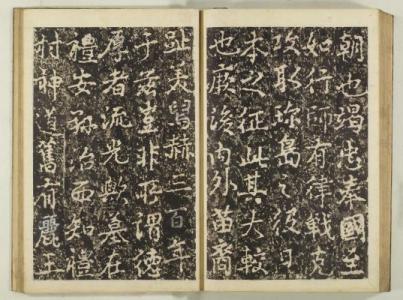 朝也竭忠奉國至
如行師有律戰克
攻取珍島之後日
本之征此其大較
也厥後內外苗裔
趾美舃赫三百年
于茲豈非所謂德
厚者流光歟墓在
禮安縣治西知禮
村神道舊有麗王